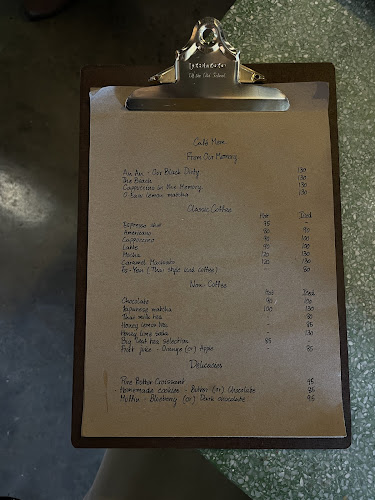 Café Menu
From Our Memory
Our Black Dirty 130
The Beach 130
Cappuccino in the Memory 130
lemon matcha 130
Classic Coffee Hot Iced
Espresso shot -
Americano 80 90
Cappuccino 90 100
Latte 90 100
Mocha 120 130
Caramel Macchiato 120 130
(Thai style iced coffee) 80
Non Coffee Hot Iced
Chocolate 90
Japanese matcha 100 130
Thai milk tea - 80
Honey lemon tea - 85
Honey lime soda - 130
tea selection 85 -
Fruit juice - Orange (or) Apple - 85
Delicacies
Pure Butter Croissant 95
Homemade cookies - Butter (or) Chocolate 85
Muffin - Blueberry (or) Dark chocolate 95